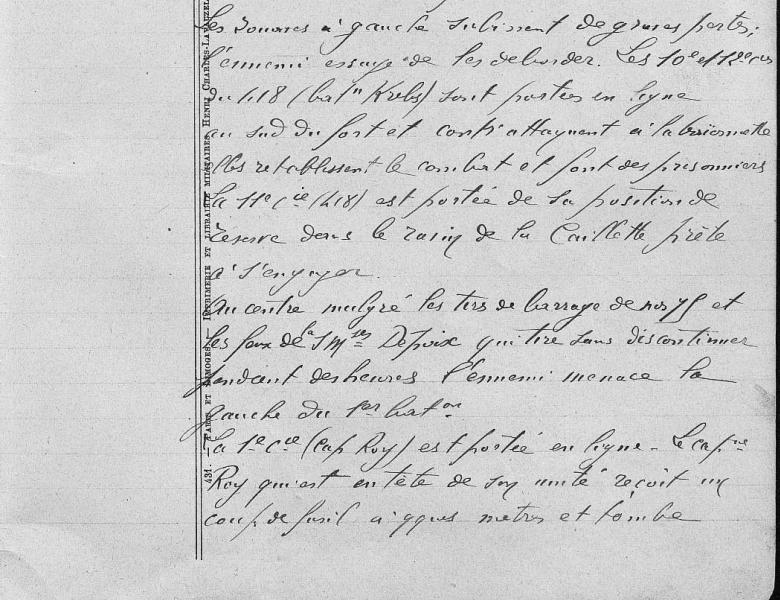 les zouaves à gauche subissent de graves pertes;
l'ennemi essaye de les deborder. Les 10e et 12e cies
du 418 (batn Krebs) sont portées en ligne
au sud du fort et contr'attaquent à la baïonnette
Elles retablissent le combat et font des prisonniers
La 11e cie (418) est portée de sa position de
reserve dans le ravin de la Caillette prête
à s'engager.
Au centre malgré les tirs de barrage de nos 75 et
les feux de la S Mses Depoix qui tire sans discontinuer
pendant des heures l'ennemi menace la
gauche du 1er baton
La 1e cie (Cap Roy) est portée en ligne - Le capne
Roy qui est en tête de son unité reçoit un
coup de fusil à qques metres et tombe
431. — PARIS ET LIMOGES. — IMPRIMERIE ET LIBRAIRIE MILITAIRES HENRI CHARLES-LAVAUZELLE